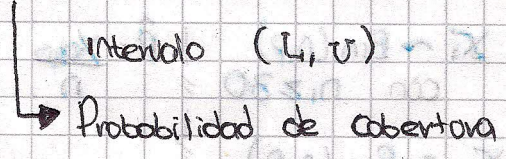 Intervalo (L, U)
Probabilidad de cobertura